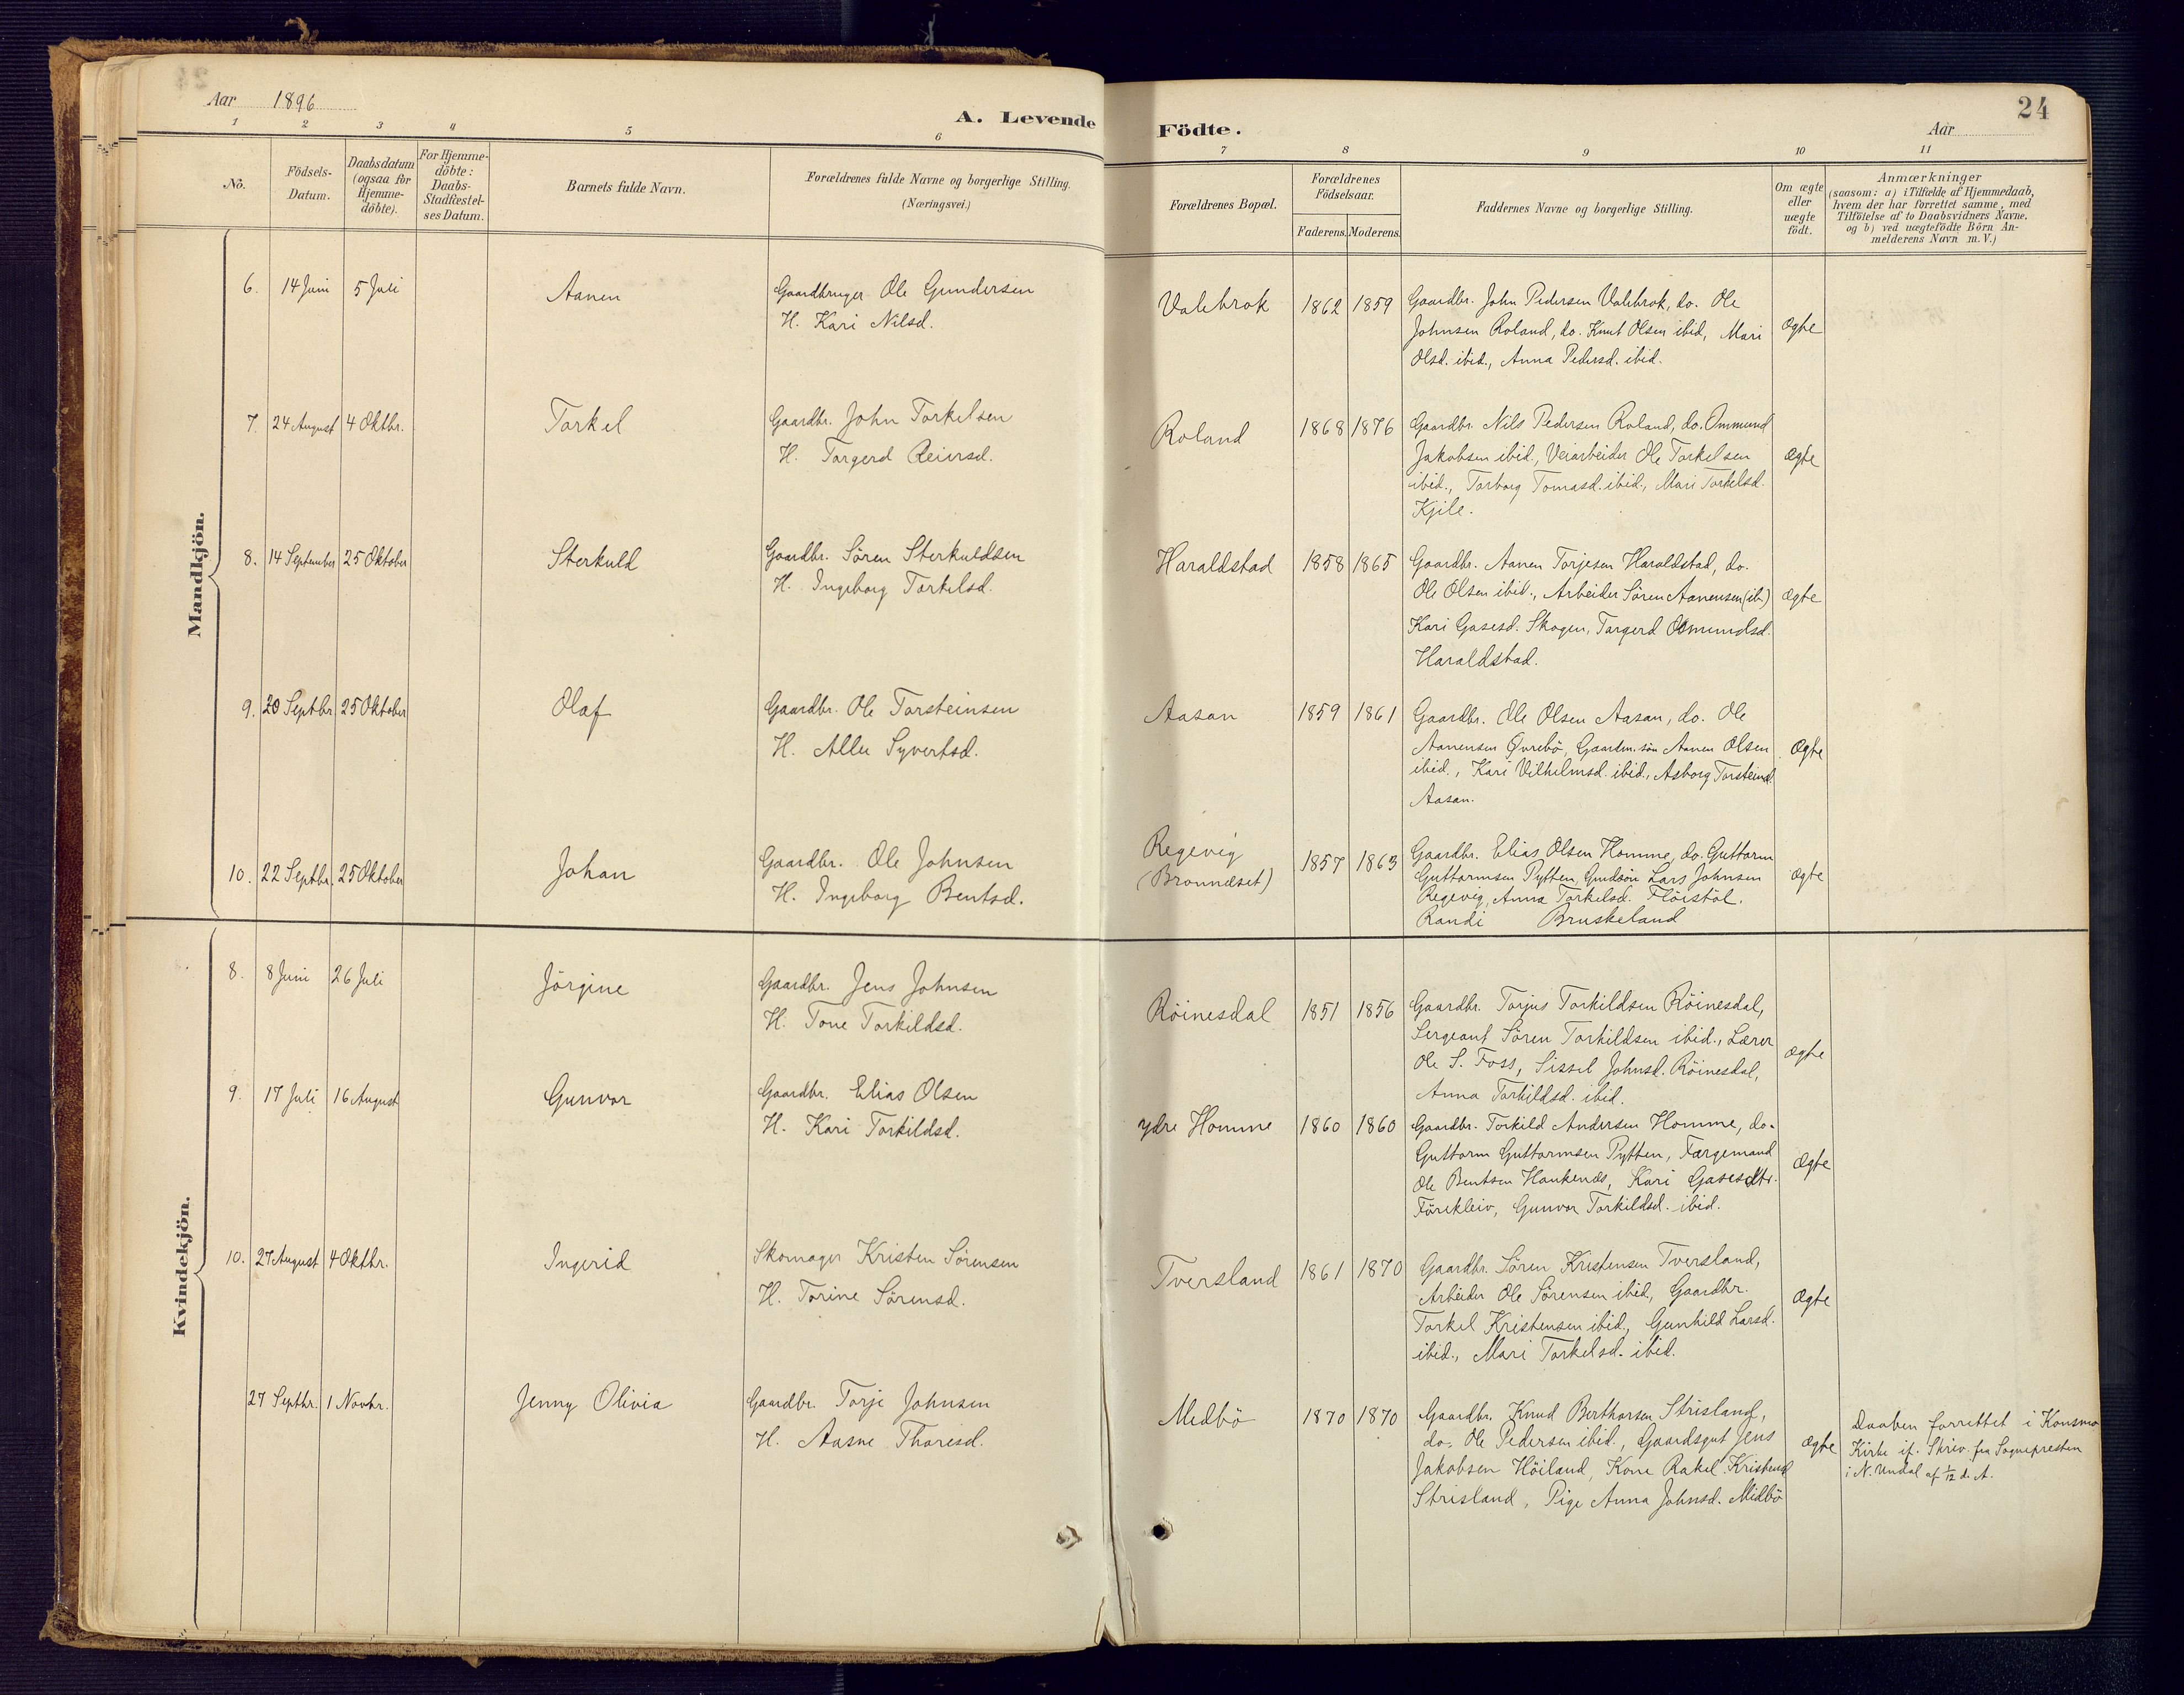 24
Aar 1896
A. Levende Födte.
Aar
1 2 3 4 5 6 7 8 9 10 11
No.
Födsels-
Datum.
Daabsdatum
(ogsaa for
Hjemme-
döbte).
For Hjemme-
döbte:
Daabs-
Stadfæstel-
ses Datum.
Barnets fulde Navn.
Forældrenes fulde Navne og borgerlige Stilling.
(Næringsvei.)
Forældrenes Bopæl.
Forældrenes
Födselsaar.
Faderens. Moderens.
Faddernes Navne og borgerlige Stilling.
Om ægte
eller
uægte
födt.
Anmærkninger
(saasom: a) i Tilfælde af Hjemmedaab,
hvem der har forrettet samme, med
Tilföielse af to Daabsvidners Navne.
og b) ved uægtefödte Börn An-
melderens Navn m. V.)
Mandkjön.
6. 14 Juni 5 Juli Aanen
Gaardbruger Ole Gundersen
H. Kari Nilsd.
Valebrok 1862 1859
Gaardbr. John Pedersen Valebrok, do. Ole
Johnsen Roland, do. Knut Olsen ibid, Mari
Olsd. ibid., Anna Pedersd. ibid.
Ægte
7. 24 August 4 Oktbr. Torkel
Gaardbr. John Torkelsen
H. Torgerd Reiersd.
Roland 1868 1876
Gaardbr. Nils Pedersen Roland, do. Ommund
Jakobsen ibid., Veiarbeider Ole Torkelsen
ibid., Torborg Tomasd. ibid., Mari Torkelsd.
Kjile.
Ægte
8. 14 September 25 Oktober Sterkuld
Gaardbr. Sören Sterkuldsen
H. Ingeborg Torkelsd.
Haraldstad 1858 1865
Gaardbr. Aanen Torjesen Haraldstad, do.
Ole Olsen ibid., Arbeider Sören Aanensen (ib.)
Kari Gasesd. Skogen, Targerd Osmundsd.
Haraldstad.
Ægte
9. 20 Septbr 25 Oktober Olaf
Gaardbr. Ole Torsteinsen
H. Allu Syvertsd.
Aasan 1859 1861
Gaardbr. Ole Olsen Aasan, do. Ole
Aanensen Øvrebö, Gaardm. sön Aanen Olsen
ibid., Kari Vilhelmsd. ibid., Asborg Torsteinsd.
Aasan.
Ægte
10. 22 Septbr. 25 Oktober Johan
Gaardbr. Ole Johnsen
H. Ingeborg Bentsd.
Regevig
(Bronnelset)
1857 1863
Gaardbr. Elias Olsen Homme, do. Guttorm
Guttormsen Pytten, Grdsön Lars Johnsen
Regevig, Anna Torkelsd. Flöistöl.
Randi Bruskeland
Ægte
Kvindekjön.
8. 8 Juni 26 Juli Jörgine
Gaardbr. Jens Johnsen
H. Tone Torkildsd.
Röinesdal 1851 1856
Gaardbr. Torjus Torkildsen Röinesdal,
Sergeant Sören Torkildsen ibid., Lærer
Ole S. Foss, Sissel Johnsd. Röinesdal,
Anna Torkildsd. ibid.
Ægte
9. 17 Juli 16 August Gunvor
Gaardbr. Elias Olsen
H. Kari Torkildsd.
ydre Homme 1860 1860
Gaardbr. Torkild Andersen Homme, do.
Guttorm Guttormsen Pytten, Færgemand
Ole Bentsen Haukenæs, Kari Gasesdtr.
Förekleiv, Gunvor Torkildsd. ibid.
Ægte
10. 27 August 4 Oktbr. Ingerid
Skomager Kristen Sörensen
H. Torine Sörensd.
Tversland 1861 1870
Gaardbr. Sören Kristensen Tversland,
Arbeider Ole Sörensen ibid, Gaardbr.
Torkel Kristensen ibid., Gunhild Larsd.
ibid., Mari Torkelsd. ibid.
Ægte
27 Septbr. 1 Novbr. Jenny Olivia
Gaardbr. Torje Johnsen
H. Aasne Thoresd.
Medbö 1870 1870
Gaardbr. Knud Berthorsen Strisland,
do. Ole Pedersen ibid., Gaardsgut Jens
Jakobsen Höiland, Kone Rakel Kristensd
Strisland, Pige Anna Johnsd. Midbö
Ægte
Daaben forrettet i Konsmo
Kirke if. Skriv. fra Sognepresten
i N. Undal af 1/12 d. A.